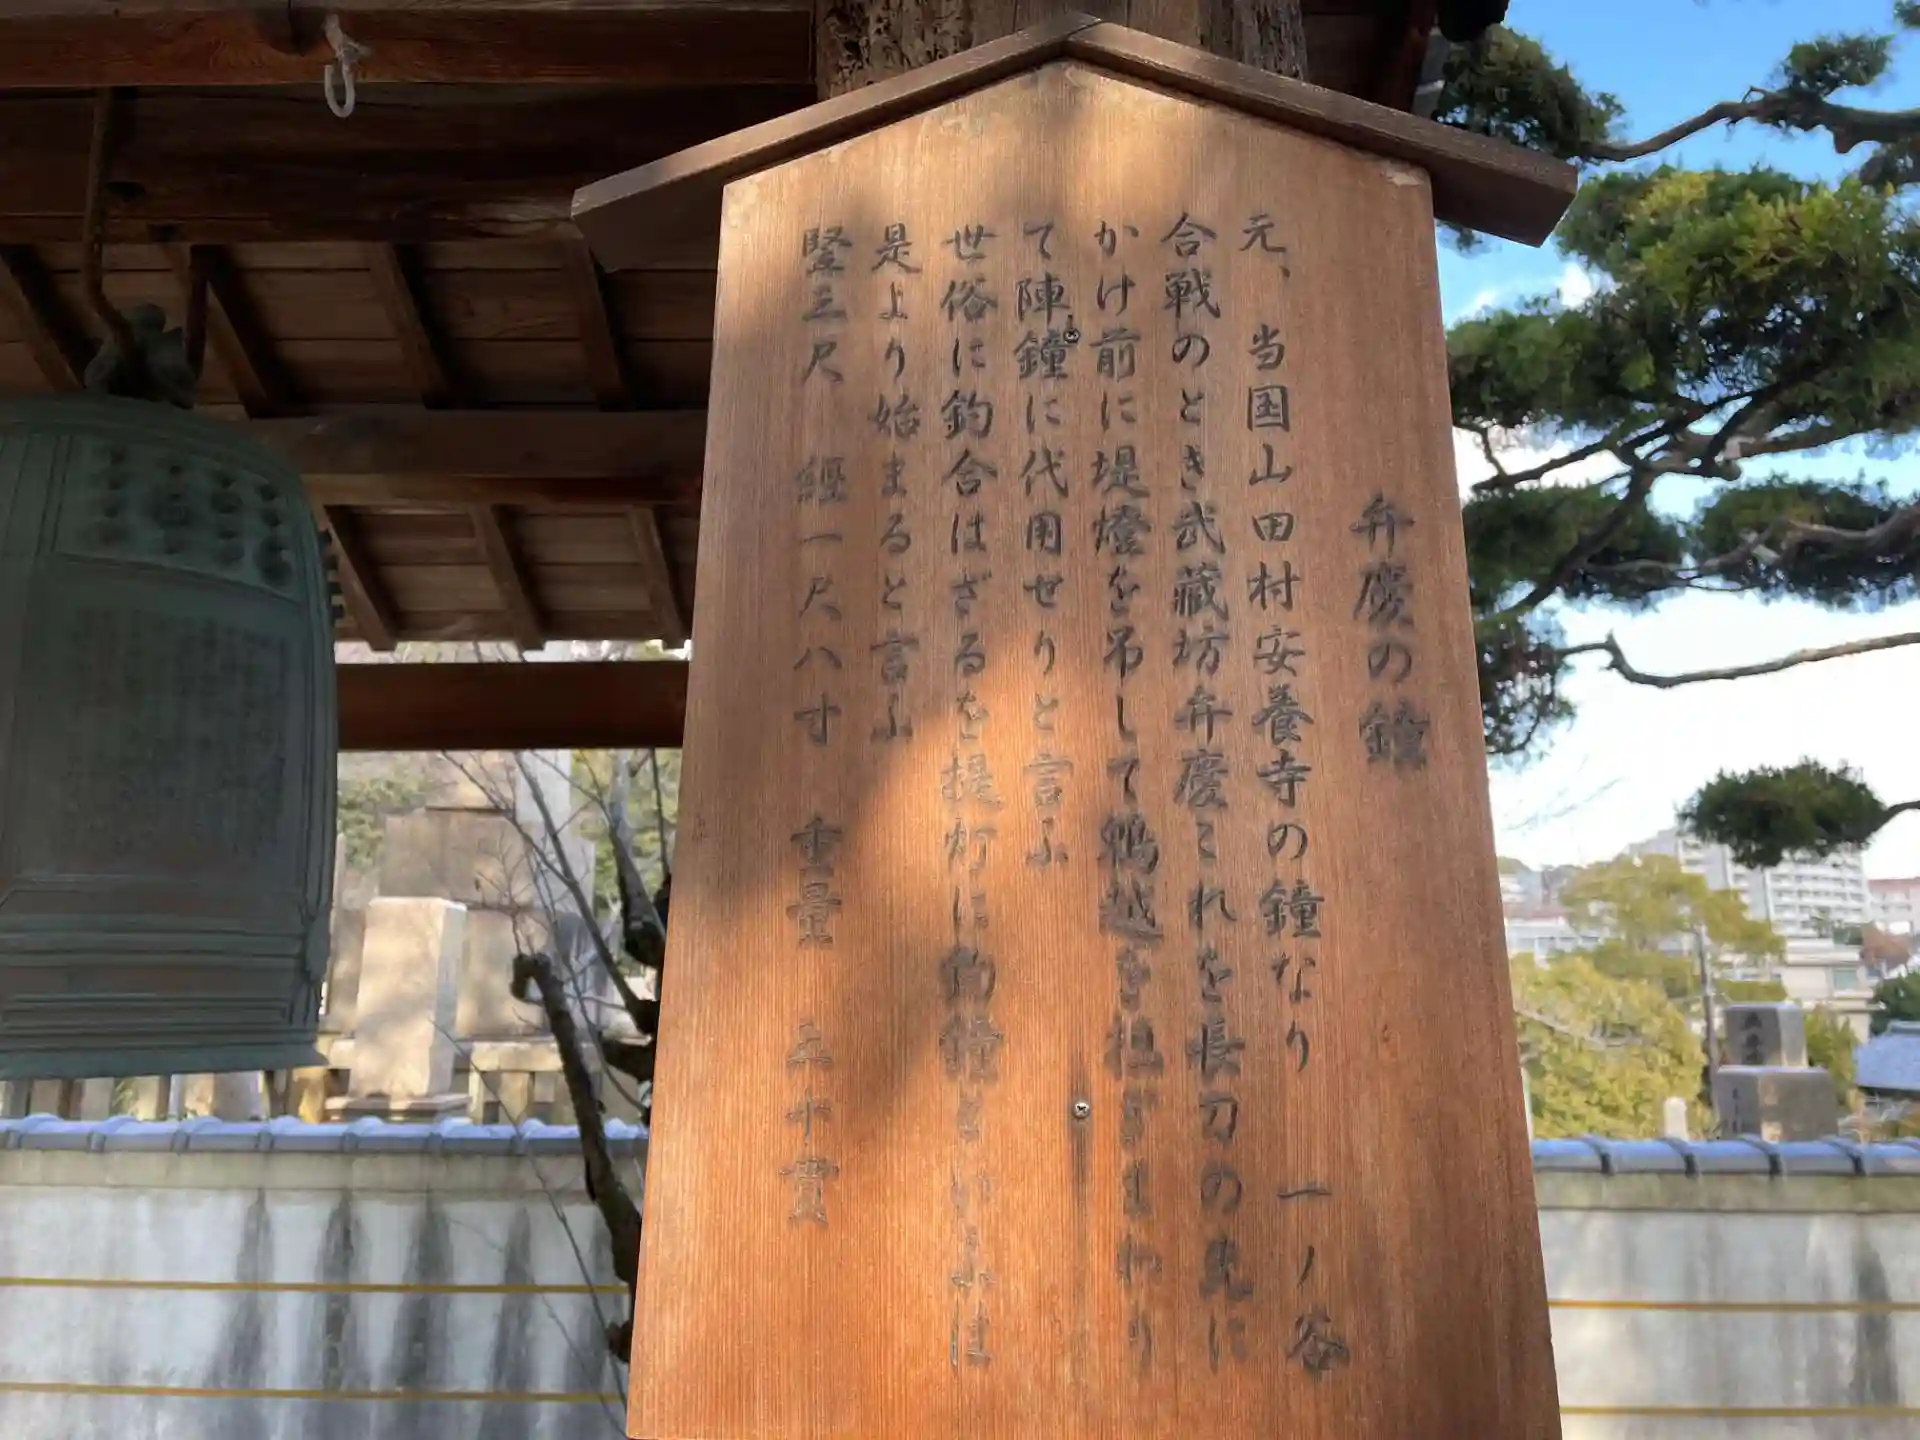 弁慶の鐘
元、当国山田村安養寺の鐘なり 一ノ谷
合戦のとき武蔵坊弁慶これを長刀の先に
かけ前に堤燈を吊して鵯越を担ぎまわり
て陣鐘に代用せりと言ふ
世俗に釣合はざるを提灯に釣鐘といふは
是より始まると言ふ
竪三尺 経一尺八寸 重量 三十貫